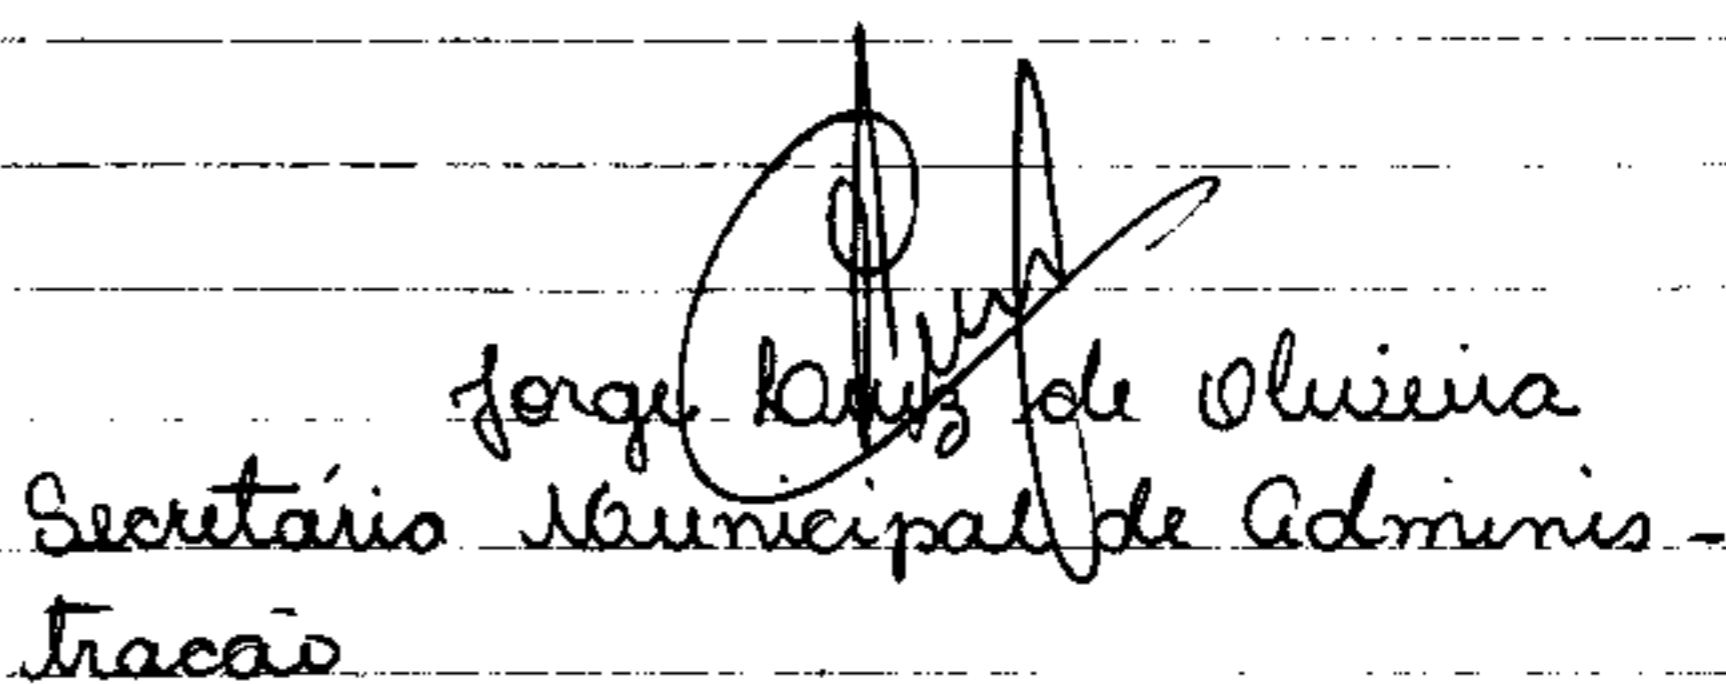 Jorge Luiz de Oliveira
Secretário Municipal de Adminis-
tracão